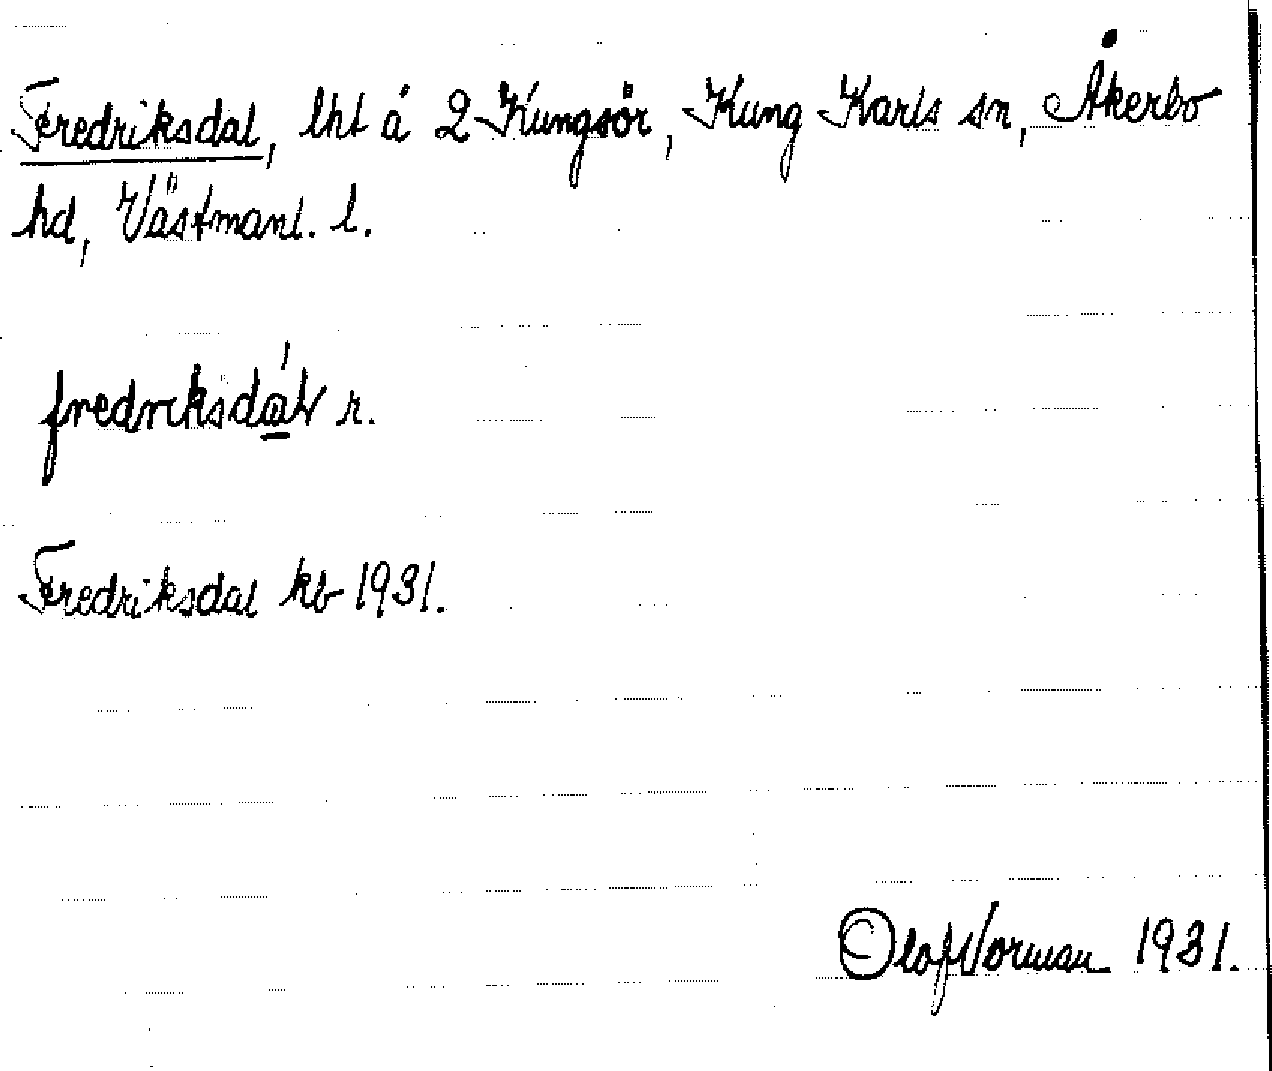 Fredriksdal, lht å 2 Kungsör, Kung Karls sn, Åkerbo
hd, Västmanl. l.
fredrɩksdɑ́lv r.
Fredriksdal kb 1931.
Olof Norman 1931.